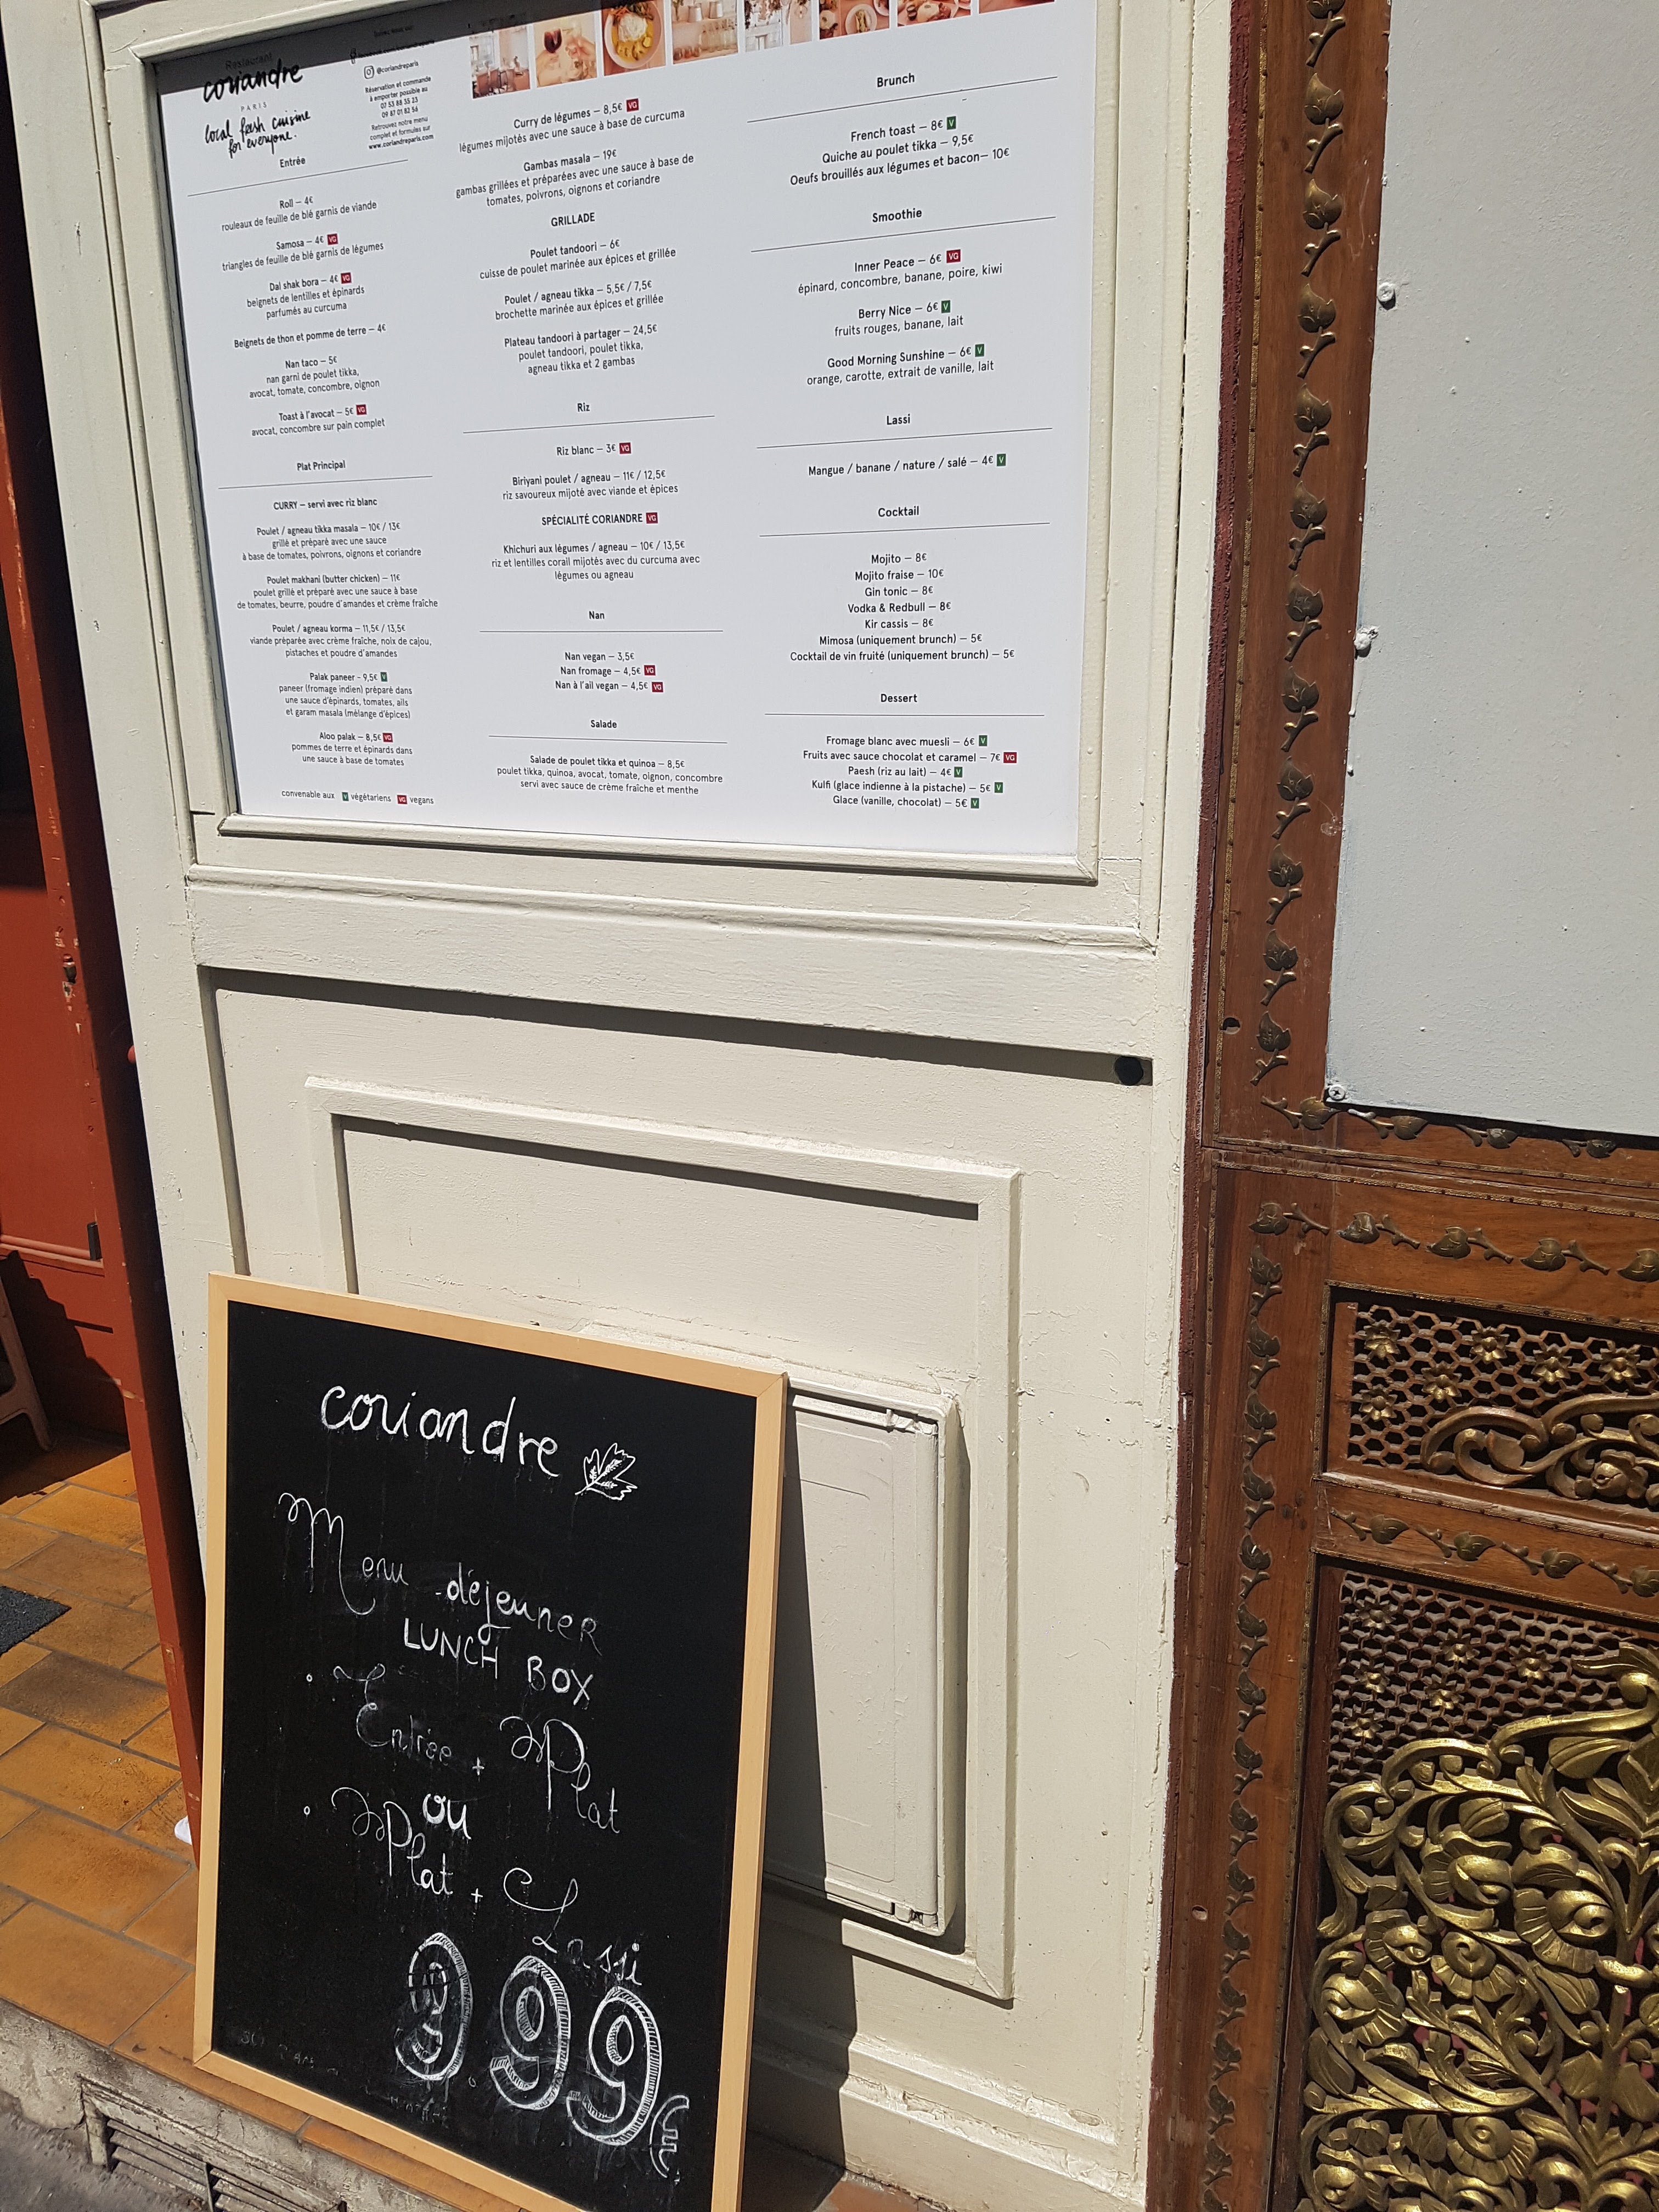 Restaurant
coriandre
PARIS
local fresh cuisine
for everyone.
@coriandreparis
Réservation et commande
à emporter possible au
07 53 88 35 23
09 87 01 82 56
Retrouvez notre menu
complet et formules sur
www.coriandreparis.com
Entrée
Roll – 4€
rouleaux de feuille de blé garnis de viande
Samosa – 4€ VG
triangles de feuille de blé garnis de légumes
Dal shak bora – 4€ VG
beignets de lentilles et épinards
parfumés au curcuma
Beignets de thon et pomme de terre – 4€
Nan taco – 5€
nan garni de poulet tikka,
avocat, tomate, concombre, oignon
Toast à l'avocat – 5€ VG
avocat, concombre sur pain complet
Plat Principal
CURRY – servi avec riz blanc
Poulet / agneau tikka masala – 10€ / 13€
grillé et préparé avec une sauce
à base de tomates, poivrons, oignons et coriandre
Poulet makhani (butter chicken) – 11€
poulet grillé et préparé avec une sauce à base
de tomates, beurre, poudre d'amandes et crème fraîche
Poulet / agneau korma – 11,5€ / 13,5€
viande préparée avec crème fraîche, noix de cajou,
pistaches et poudre d'amandes
Palak paneer - 9,5€ V
paneer (fromage indien) préparé dans
une sauce d'épinards, tomates, ails
et garam masala (mélange d'épices)
Aloo palak – 8,5€ VG
pommes de terre et épinards dans
une sauce à base de tomates
convenable aux V végétariens VG vegans
Curry de légumes – 8,5€ VG
légumes mijotés avec une sauce à base de curcuma
Gambas masala – 19€
gambas grillées et préparées avec une sauce à base de
tomates, poivrons, oignons et coriandre
GRILLADE
Poulet tandoori – 6€
cuisse de poulet marinée aux épices et grillée
Poulet / agneau tikka – 5,5€ / 7,5€
brochette marinée aux épices et grillée
Plateau tandoori à partager – 24,5€
poulet tandoori, poulet tikka,
agneau tikka et 2 gambas
Riz
Riz blanc – 3€ VG
Biriyani poulet / agneau – 11€ / 12,5€
riz savoureux mijoté avec viande et épices
SPÉCIALITÉ CORIANDRE VG
Khichuri aux légumes / agneau – 10€ / 13,5€
riz et lentilles corail mijotés avec du curcuma avec
légumes ou agneau
Nan
Nan vegan – 3,5€
Nan fromage – 4,5€ VG
Nan à l'ail vegan – 4,5€ VG
Salade
Salade de poulet tikka et quinoa – 8,5€
poulet tikka, quinoa, avocat, tomate, oignon, concombre
servi avec sauce de crème fraîche et menthe
Brunch
French toast – 8€ V
Quiche au poulet tikka – 9,5€
Oeufs brouillés aux légumes et bacon– 10€
Smoothie
Inner Peace – 6€ VG
épinard, concombre, banane, poire, kiwi
Berry Nice – 6€ V
fruits rouges, banane, lait
Good Morning Sunshine – 6€ V
orange, carotte, extrait de vanille, lait
Lassi
Mangue / banane / nature / salé – 4€ V
Cocktail
Mojito – 8€
Mojito fraise – 10€
Gin tonic – 8€
Vodka & Redbull – 8€
Kir cassis – 8€
Mimosa (uniquement brunch) – 5€
Cocktail de vin fruité (uniquement brunch) – 5€
Dessert
Fromage blanc avec muesli – 6€ V
Fruits avec sauce chocolat et caramel – 7€ VG
Paesh (riz au lait) – 4€ V
Kulfi (glace indienne à la pistache) – 5€ V
Glace (vanille, chocolat) – 5€ V
coriandre
Menu déjeuner
LUNCH BOX
Entrée + Plat
ou
Plat + Lassi
9.99€